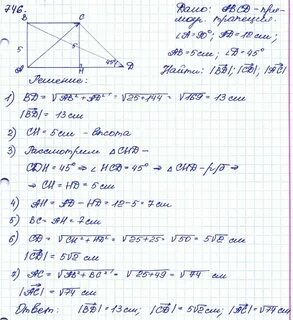 746.
Дано: ABCD - пря-
моуг. трапеция.
∠A=90°; AD=12см;
AB=5см; ∠D=45°
Найти: |BD|; |CD|; |AC|
B C
5 5
45°
A H D
Решение:
1) BD = √AB²+AD² = √25+144 = √169 = 13 см
|BD| = 13см
2) CH = 5см - высота
3) Рассмотрим △CHD -
∠CDH = 45° ⇒ ∠HCD = 45° ⇒ △CHD - р/б ⇒
⇒ CH = HD = 5 см
4) AH = AD - HD = 12-5 = 7см
5) BC = AH = 7см
6) CD = √CH²+HD² = √25+25 = √50 = 5√2 см
|CD| = 5√2 см
7) AC = √AB²+BC² = √25+49 = √74 см
|AC| = √74 см
Ответ: |BD| = 13см; |CD| = 5√2 см; |AC| = √74 см